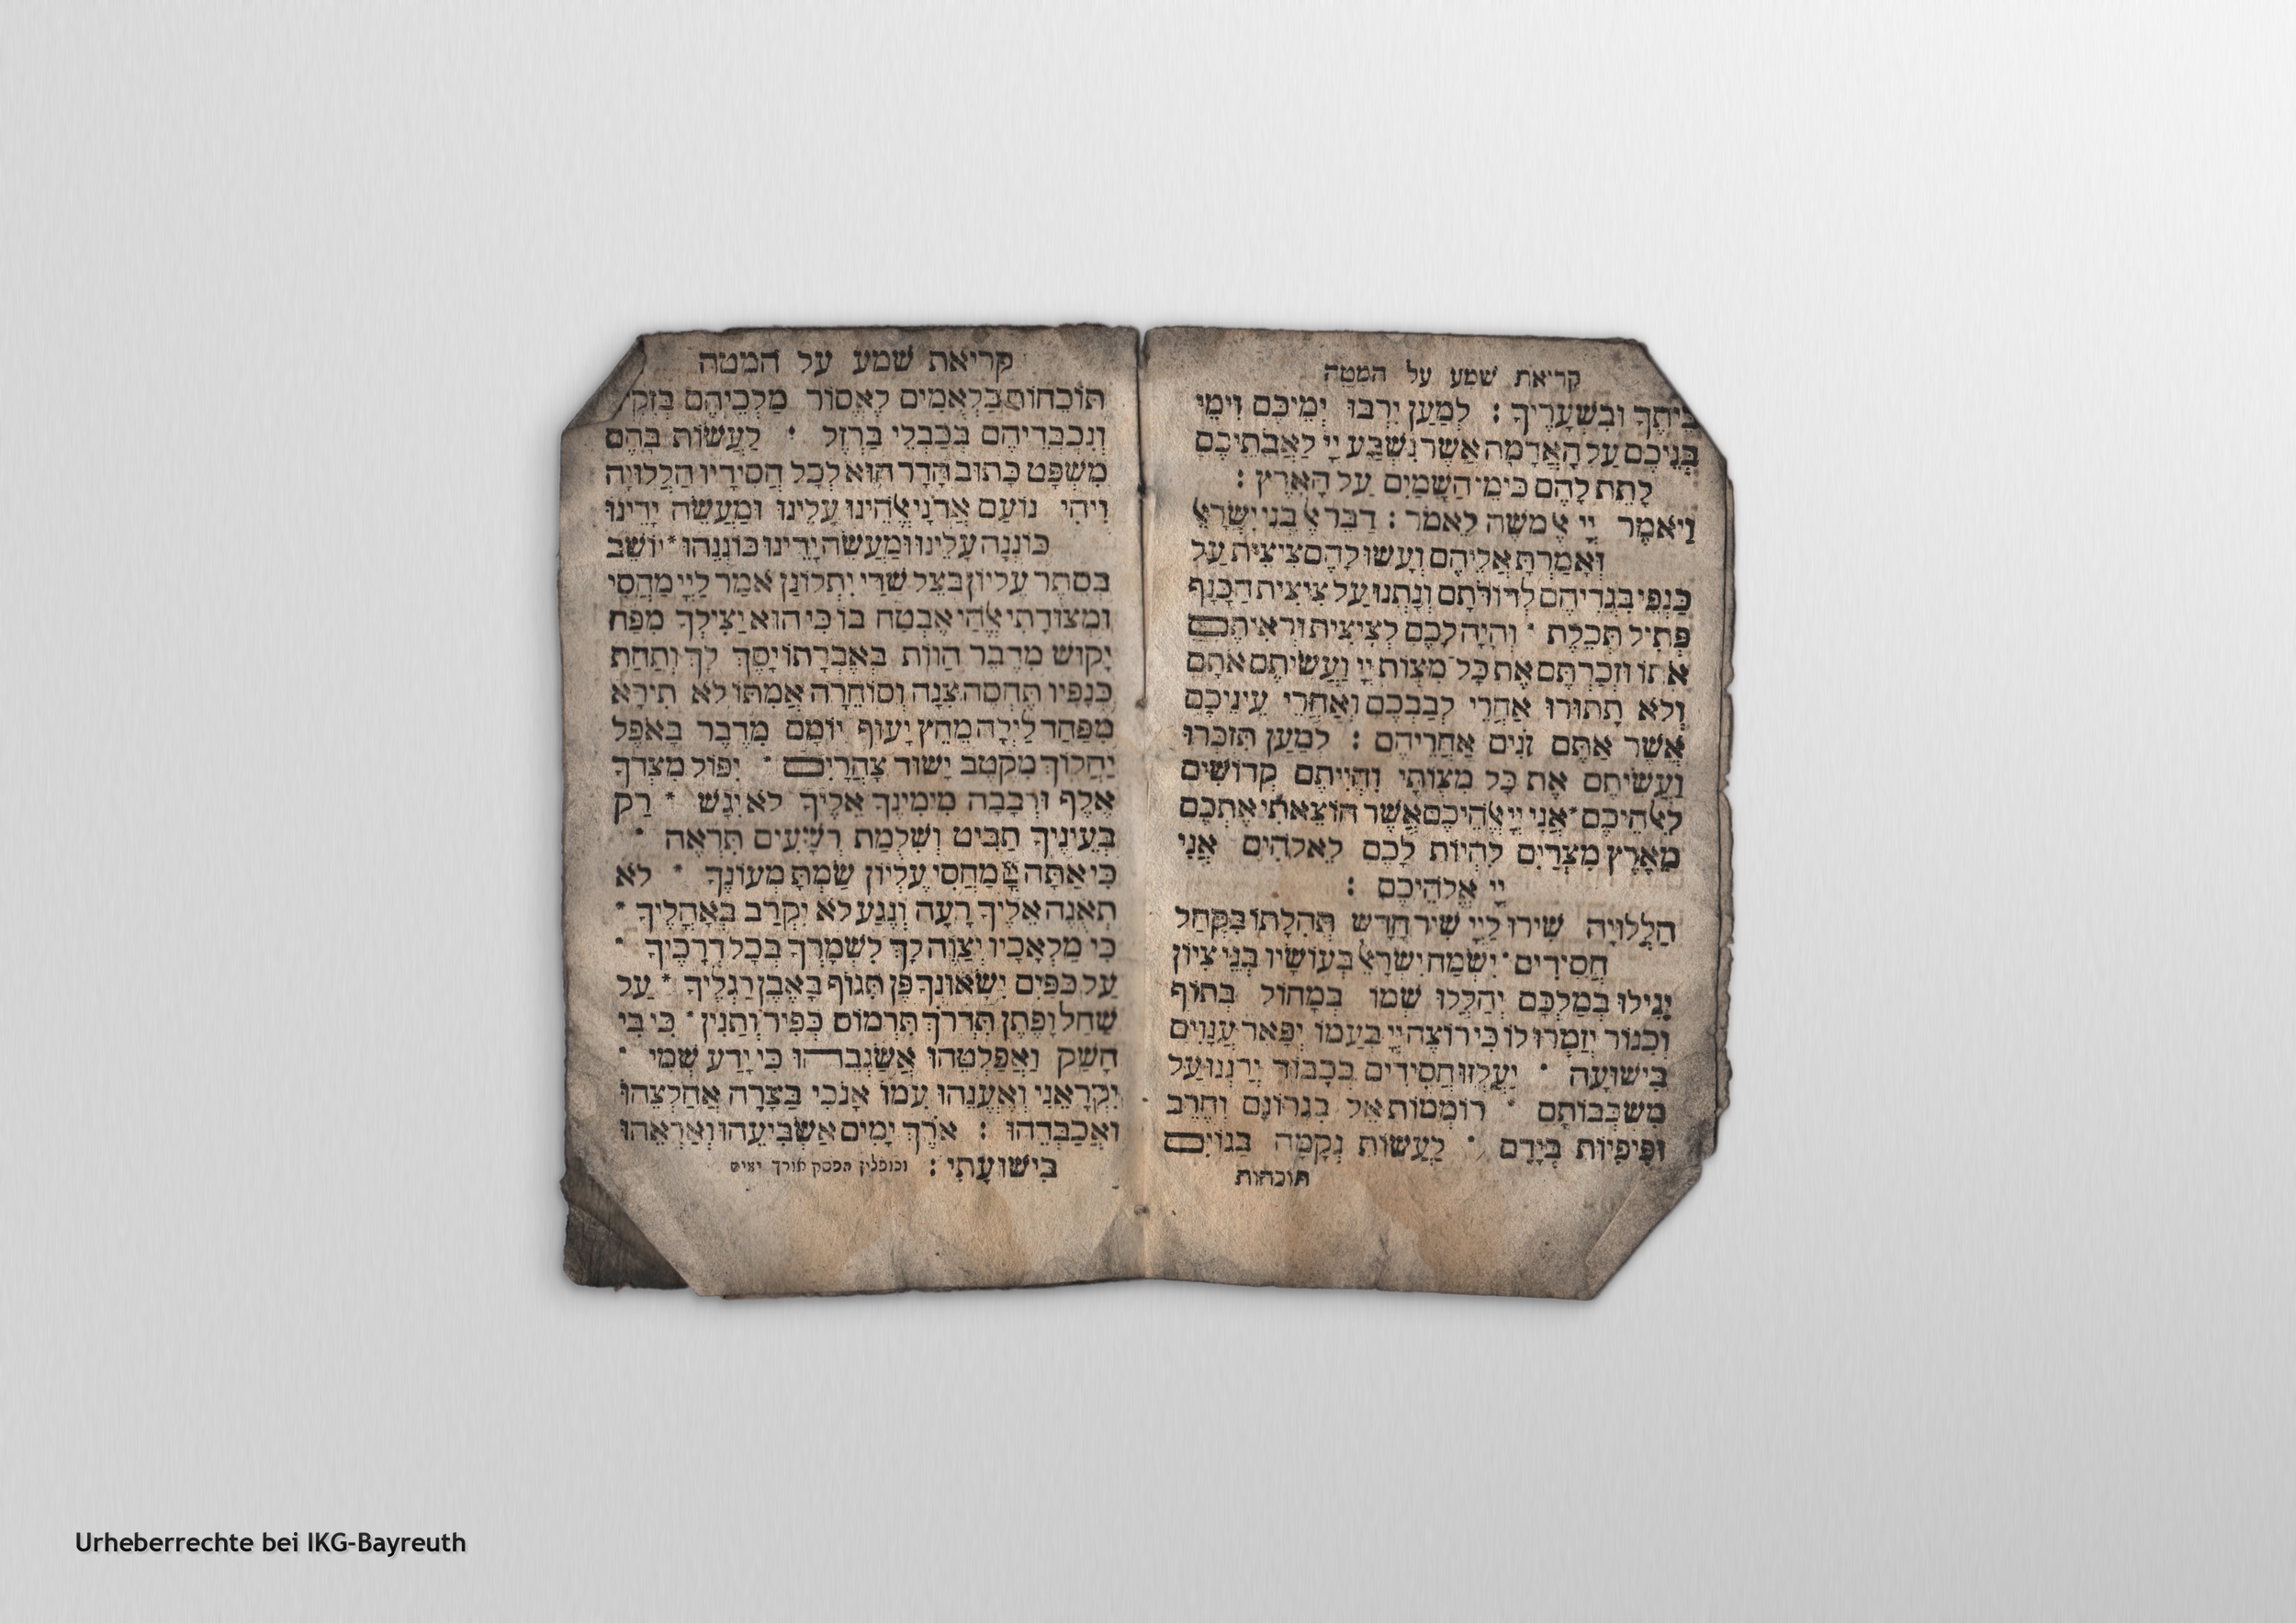 קריאת שמע על המטה
בֵּיתֶךָ וּבִשְׁעָרֶיךָ : לְמַעַן יִרְבּוּ יְמֵיכֶם וִימֵי
בְּנֵיכֶם עַל הָאֲדָמָה אֲשֶׁר נִשְׁבַּע יְיָ לַאֲבֹתֵיכֶם
לָתֵת לָהֶם כִּימֵי הַשָּׁמַיִם עַל הָאָרֶץ :
וַיֹּאמֶר יְיָ אֶל מֹשֶׁה לֵּאמֹר : דַּבֵּר אֶל בְּנֵי יִשְׂרָאֵל
וְאָמַרְתָּ אֲלֵיהֶם וְעָשׂוּ לָהֶם צִיצִית עַל
כַּנְפֵי בִגְדֵיהֶם לְדוֹרֹתָם וְנָתְנוּ עַל צִיצִית הַכָּנָף
פְּתִיל תְּכֵלֶת ׃ וְהָיָה לָכֶם לְצִיצִית וּרְאִיתֶם
אֹתוֹ וּזְכַרְתֶּם אֶת כָּל מִצְוֹת יְיָ וַעֲשִׂיתֶם אֹתָם
וְלֹא תָתוּרוּ אַחֲרֵי לְבַבְכֶם וְאַחֲרֵי עֵינֵיכֶם
אֲשֶׁר אַתֶּם זֹנִים אַחֲרֵיהֶם : לְמַעַן תִּזְכְּרוּ
וַעֲשִׂיתֶם אֶת כָּל מִצְוֹתָי וִהְיִיתֶם קְדוֹשִׁים
לֵאלֹהֵיכֶם * אֲנִי יְיָ אֱלֹהֵיכֶם אֲשֶׁר הוֹצֵאתִי אֶתְכֶם
מֵאֶרֶץ מִצְרַיִם לִהְיוֹת לָכֶם לֵאלֹהִים אֲנִי
יְיָ אֱלֹהֵיכֶם :
הַלְלוּיָהּ שִׁירוּ לַיְיָ שִׁיר חָדָשׁ תְּהִלָּתוֹ בִּקְהַל
חֲסִידִים * יִשְׂמַח יִשְׂרָאֵל בְּעוֹשָׂיו בְּנֵי צִיּוֹן
יָגִילוּ בְמַלְכָּם יְהַלְלוּ שְׁמוֹ בְמָחוֹל בְּתוֹף
וְכִנּוֹר יְזַמְּרוּ לוֹ כִּי רוֹצֶה יְיָ בְּעַמּוֹ יְפָאֵר עֲנָוִים
בִּישׁוּעָה * יַעְלְזוּ חֲסִידִים בְּכָבוֹד יְרַנְּנוּ עַל
מִשְׁכְּבוֹתָם * רוֹמְמוֹת אֵל בִּגְרוֹנָם וְחֶרֶב
פִּיפִיּוֹת בְּיָדָם * לַעֲשׂוֹת נְקָמָה בַּגּוֹיִם
תוכחות
קריאת שמע על המטה
תּוֹכֵחוֹת בַּלְאֻמִּים לֶאְסוֹר מַלְכֵיהֶם בְּזִקִּ
וְנִכְבְּדֵיהֶם בְּכַבְלֵי בַרְזֶל * לַעֲשׂוֹת בָּהֶם
מִשְׁפָּט כָּתוּב הָדָר הוּא לְכָל חֲסִידָיו הַלְלוּיָהּ
וִיהִי נוֹעַם אֲדֹנָי אֱלֹהֵינוּ עָלֵינוּ וּמַעֲשֵׂה יָדֵינוּ
כּוֹנְנָה עָלֵינוּ וּמַעֲשֵׂה יָדֵינוּ כּוֹנְנֵהוּ * יוֹשֵׁב
בְּסֵתֶר עֶלְיוֹן בְּצֵל שַׁדַּי יִתְלוֹנָן אֹמַר לַיְיָ מַחְסִי
וּמְצוּדָתִי אֱלֹהַי אֶבְטַח בּוֹ כִּי הוּא יַצִּילְךָ מִפַּח
יָקוּשׁ מִדֶּבֶר הַוּוֹת בְּאֶבְרָתוֹ יָסֶךְ לָךְ וְתַחַת
כְּנָפָיו תֶּחְסֶה צִנָּה וְסוֹחֵרָה אֲמִתּוֹ לֹא תִירָא
מִפַּחַד לַיְלָה מֵחֵץ יָעוּף יוֹמָם מִדֶּבֶר בָּאֹפֶל
יַהֲלוֹךְ מִקֶּטֶב יָשׁוּד צָהֳרָיִם * יִפּוֹל מִצִּדְּךָ
אֶלֶף וּרְבָבָה מִימִינֶךָ אֵלֶיךָ לֹא יִגָּשׁ * רַק
בְּעֵינֶיךָ תַבִּיט וְשִׁלֻּמַת רְשָׁעִים תִּרְאֶה *
כִּי אַתָּה יְיָ מַחְסִי עֶלְיוֹן שַׂמְתָּ מְעוֹנֶךָ * לֹא
תְאֻנֶּה אֵלֶיךָ רָעָה וְנֶגַע לֹא יִקְרַב בְּאָהֳלֶיךָ *
כִּי מַלְאָכָיו יְצַוֶּה לָּךְ לִשְׁמָרְךָ בְּכָל דְּרָכֶיךָ *
עַל כַּפַּיִם יִשָּׂאוּנְךָ פֶּן תִּגּוֹף בָּאֶבֶן רַגְלֶיךָ * עַל
שַׁחַל וָפֶתֶן תִּדְרֹךְ תִּרְמוֹס כְּפִיר וְתַנִּין * כִּי בִי
חָשַׁק וַאֲפַלְּטֵהוּ אֲשַׂגְּבֵהוּ כִּי יָדַע שְׁמִי *
יִקְרָאֵנִי וְאֶעֱנֵהוּ עִמּוֹ אָנֹכִי בְצָרָה אֲחַלְּצֵהוּ
וַאֲכַבְּדֵהוּ : אֹרֶךְ יָמִים אַשְׂבִּיעֵהוּ וְאַרְאֵהוּ
בִּישׁוּעָתִי : וכופלין הפסק אורך ימים
Urheberrechte bei IKG-Bayreuth